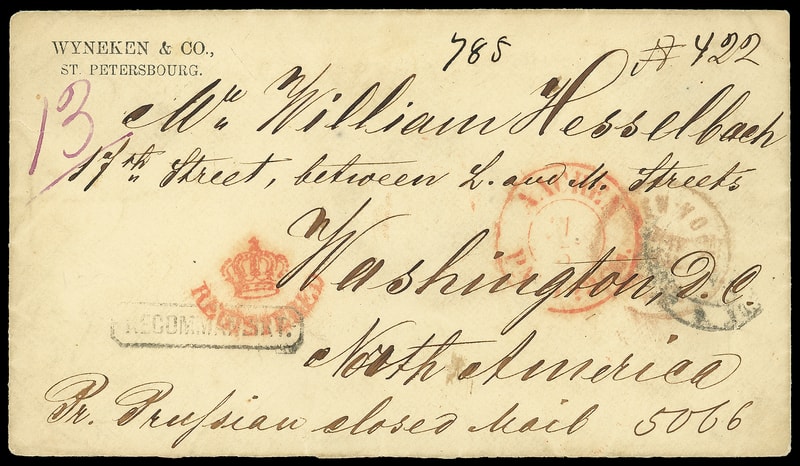 WYNEKEN & CO.,
ST. PETERSBOURG.
785
422
13
Mr. William Hesselbach
17th Street, between L. and M. Streets
Washington, D.C.
REGISTERED
RECOMMANDIRT.
North America
Pr. Prussian closed Mail 5066